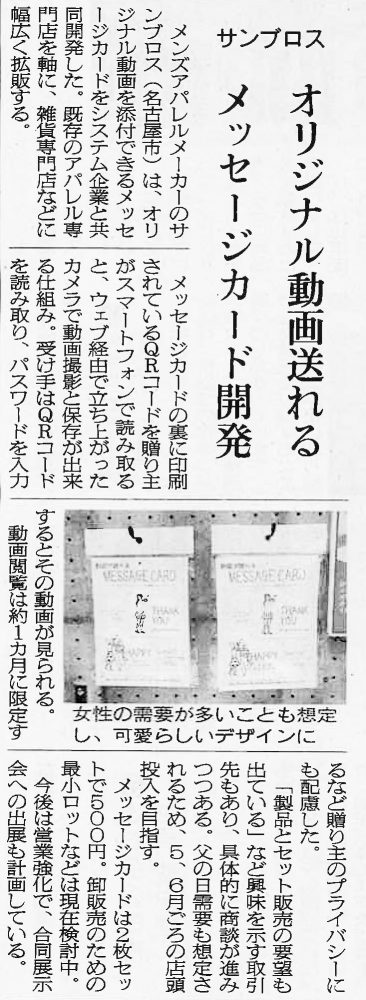 サンブロス
オリジナル動画送れる
メッセージカード開発
メンズアパレルメーカーのサ
ンブロス（名古屋市）は、オリ
ジナル動画を添付できるメッセ
ージカードをシステム企業と共
同開発した。既存のアパレル専
門店を軸に、雑貨専門店などに
幅広く拡販する。
メッセージカードの裏に印刷
されているＱＲコードを贈り主
がスマートフォンで読み取る
と、ウェブ経由で立ち上がった
カメラで動画撮影と保存が出来
る仕組み。受け手はＱＲコード
を読み取り、パスワードを入力
するとその動画が見られる。
動画閲覧は約１カ月に限定す
MESSAGE CARD
THANK
YOU
HAPPY
MESSAGE CARD
THANK
YOU
HAPPY
女性の需要が多いことも想定
し、可愛らしいデザインに
るなど贈り主のプライバシーに
も配慮した。
「製品とセット販売の要望も
出ている」など興味を示す取引
先もあり、具体的に商談が進み
つつある。父の日需要も想定さ
れるため、５、６月ごろの店頭
投入を目指す。
メッセージカードは２枚セッ
トで５００円。卸販売のための
最小ロットなどは現在検討中。
今後は営業強化で、合同展示
会への出展も計画している。